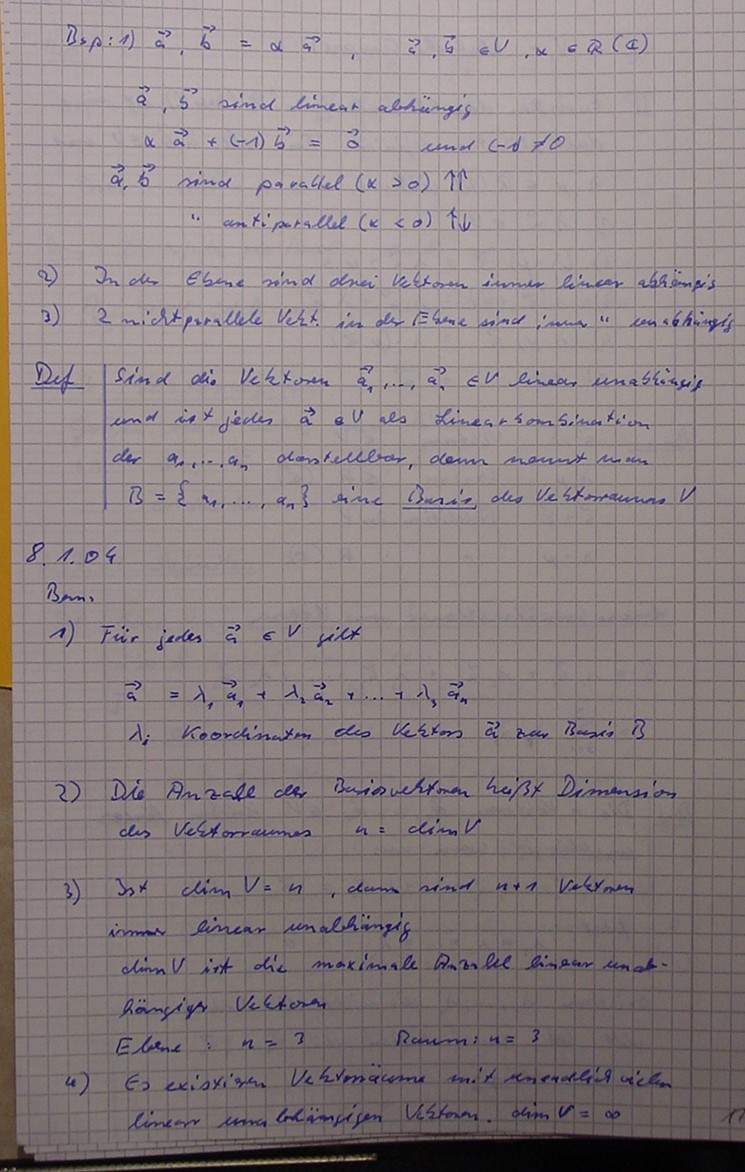 Bsp: 1) a⃗, b⃗ = α a⃗ , a⃗, b⃗ ∈ V, α ∈ R (C)
a⃗, b⃗ sind linear abhängig
α a⃗ + (-1) b⃗ = 0⃗ und (-1) ≠ 0
a⃗, b⃗ sind parallel (α > 0) ↑↑
" antiparallel (α < 0) ↑↓
2) In der Ebene sind drei Vektoren immer linear abhängig
3) 2 nichtparallele Vekt. in der Ebene sind immer " unabhängig
Def Sind die Vektoren a⃗₁, ..., a⃗ₙ ∈ V linear unabhängig
und ist jedes a⃗ ∈ V als Linearkombination
der a₁, ..., aₙ darstellbar, dann nennt man
B = { a₁, ..., aₙ} eine Basis des Vektorraumes V
8.1.04
Bem.
1) Für jedes a⃗ ∈ V gilt
a⃗ = λ₁ a⃗₁ + λ₂ a⃗₂ + ... + λ₃ a⃗ₙ
λᵢ Koordinaten des Vektors a⃗ zur Basis B
2) Die Anzahl der Basisvektoren heißt Dimension
des Vektorraumes n = dim V
3) Ist dim V = n , dann sind n+1 Vektoren
immer linear unabhängig
dim V ist die maximale Anzahl linear unab-
hängiger Vektoren
Ebene : n = 3 Raum: n = 3
4) Es existieren Vektorräume mit unendlich vielen
linear unabhängigen Vektoren. dim V = ∞